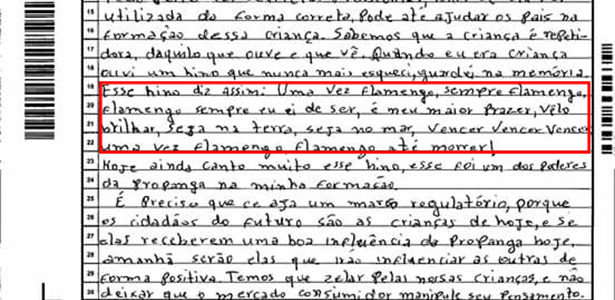 15 utilizada da forma correta, Pode até ajudar os Pais na
16 formação dessa criança. Sabemos que a criança é repeti-
17 dora, daquilo que ouve e que vê. Quando eu era criança
18 ouvi um hino que nunca mais esqueci, guardei na memória.
19 Esse hino diz assim: Uma vez flamengo, sempre flamengo,
20 flamengo sempre eu ei de ser, é meu maior Prazer, velo
21 brilhar, seja na terra, seja no mar, vencer vencer vencer
22 uma vez flamengo, flamengo até morrer!
23 Hoje ainda canto muito esse hino, esse foi um dos poderes
24 da Propanga na minha formação.
25 É Preciso que ce aja um marco regulatório, porque
26 os cidadãos do futuro são as crianças de hoje, e se
27 elas receberem uma boa influência da Propanga hoje,
28 amanhã serão elas que irão influenciar as outras de
29 forma Positiva. Temos que zelar Pelas nossas crianças, e não
30 deixar que o mercado consumidor manipule seu Pensamento.